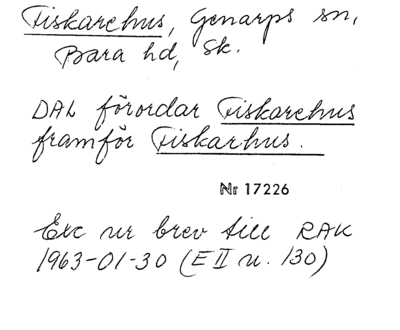 Fiskarehus, Genarps sn,
Bara hd, Sk.
DAL förordar Fiskarehus
framför Fiskarhus.
Nr 17226
Exc ur brev till RAK
1963-01-30 (E II u. 130)